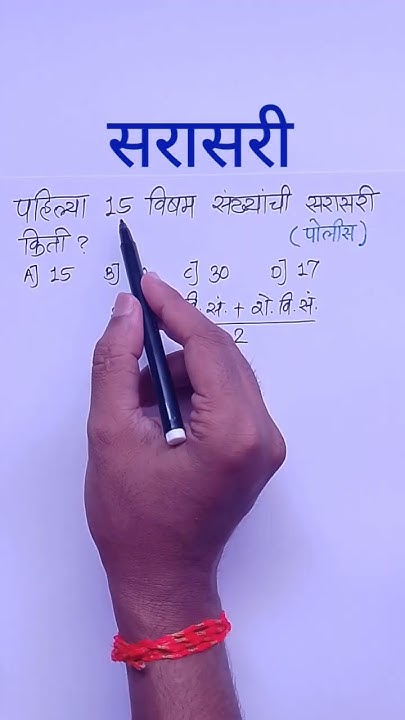 सरासरी
पहिल्या 15 विषम संख्यांची सरासरी
किती ? (पोलीस)
A] 15 B] C] 30 D] 17
सं. + शे. वि. सं.
2